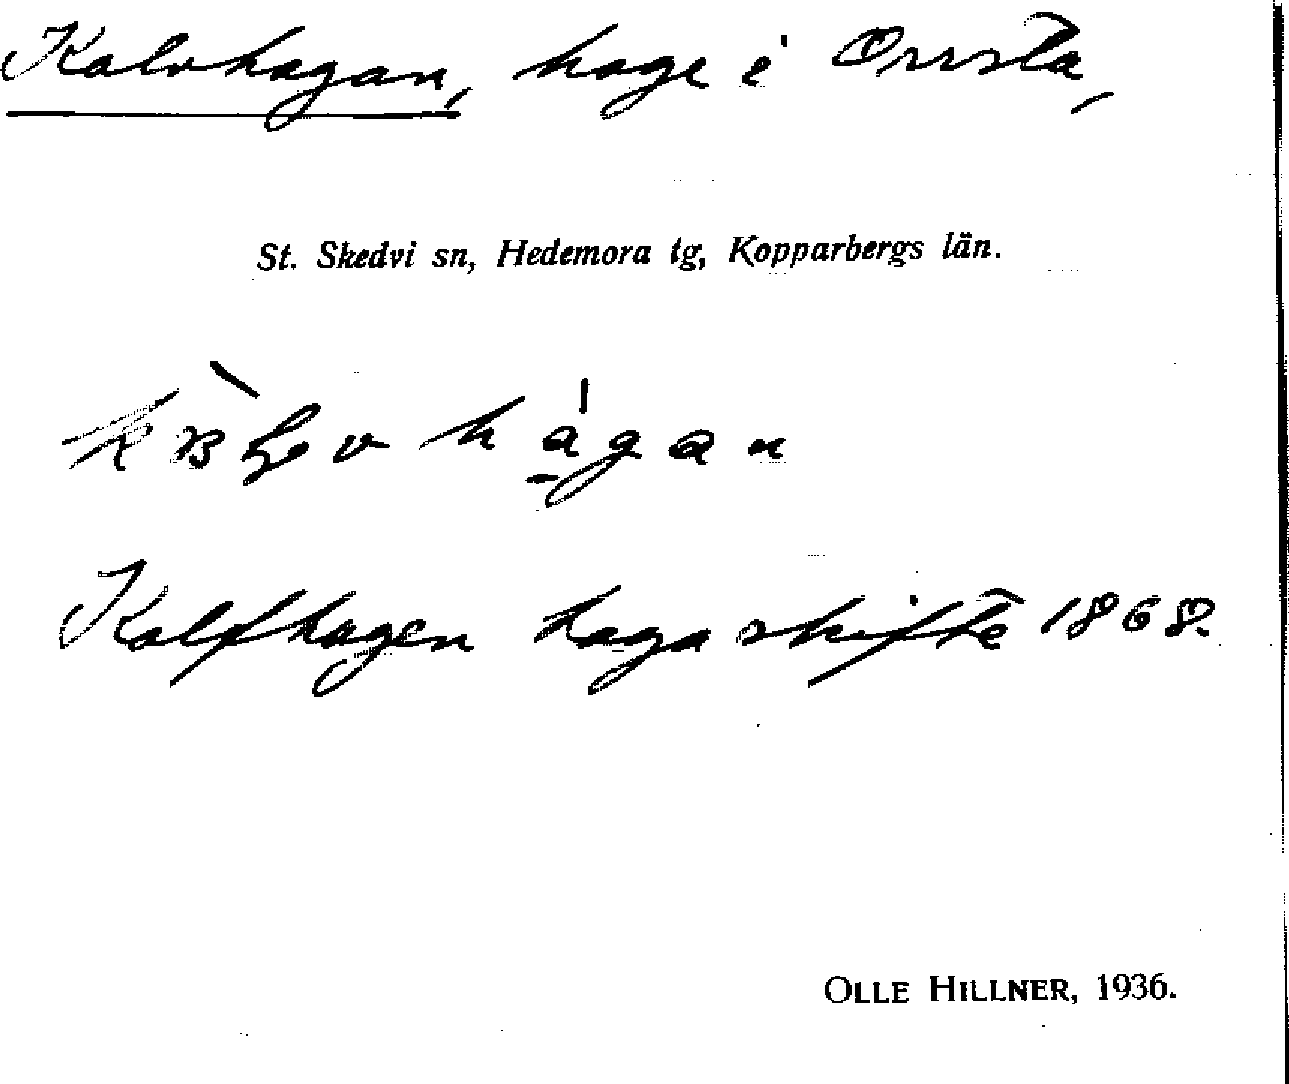 Kalvhagan, hage i Orrsta,
St. Skedvi sn, Hedemora tg, Kopparbergs län.
Kalfhagen hagaskifte 1868.
OLLE HILLNER, 1936.